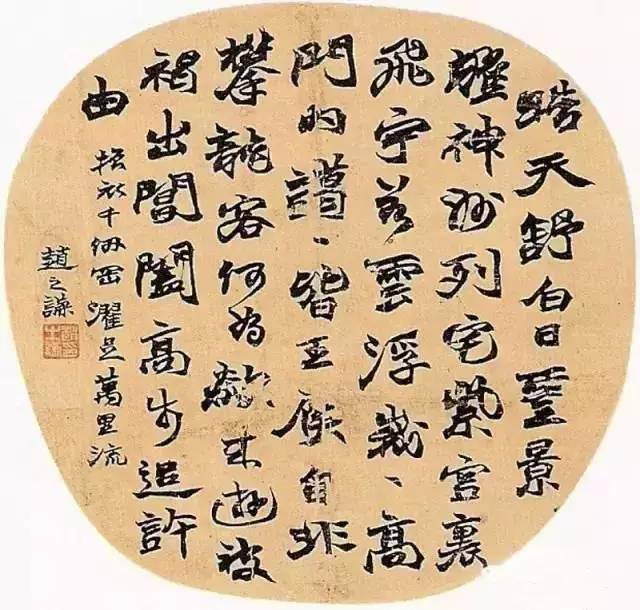 皓天舒白日靈景
耀神州列宅紫宮裏
飛宇若雲浮峩〻高
門內藹〻皆王侯自非
攀龍客何為欻来遊被
褐出閶闔高步追許
由 振衣千仞岡濯足萬里流
趙之謙